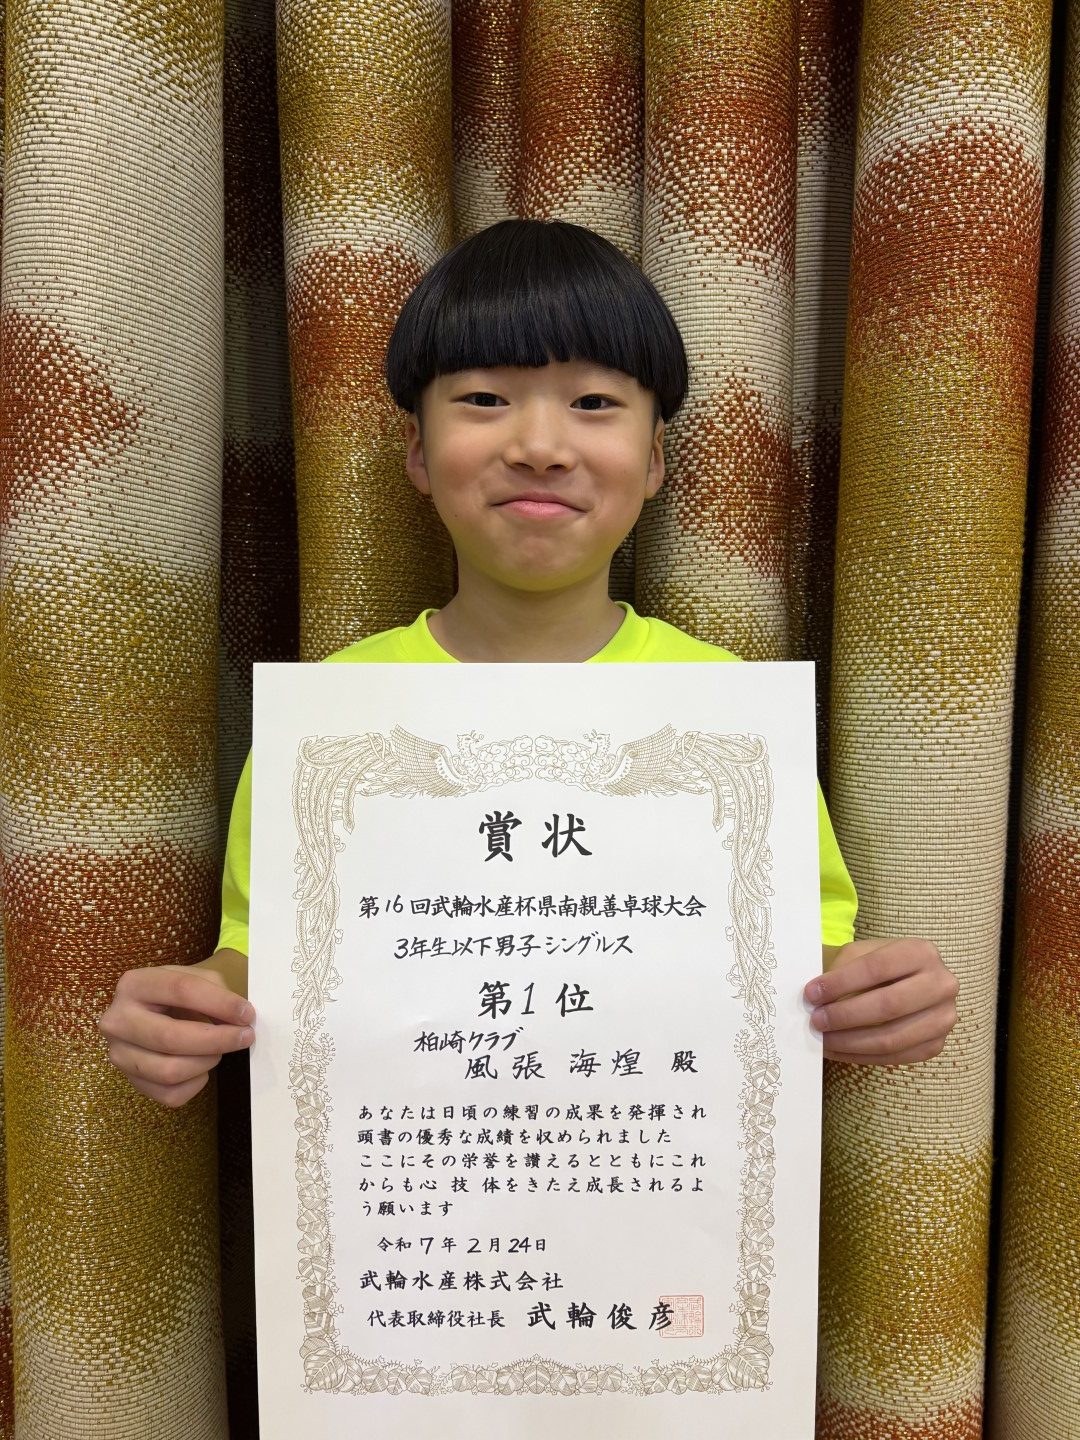 賞状
第16回武輪水産杯県南親善卓球大会
3年生以下男子シングルス
第1位
柏崎クラブ
風張 海煌 殿
あなたは日頃の練習の成果を発揮され
頭書の優秀な成績を収められました
ここにその栄誉を讃えるとともにこれ
からも心 技 体をきたえ成長されるよ
う願います
令和7年2月24日
武輪水産株式会社
代表取締役社長 武輪俊彦